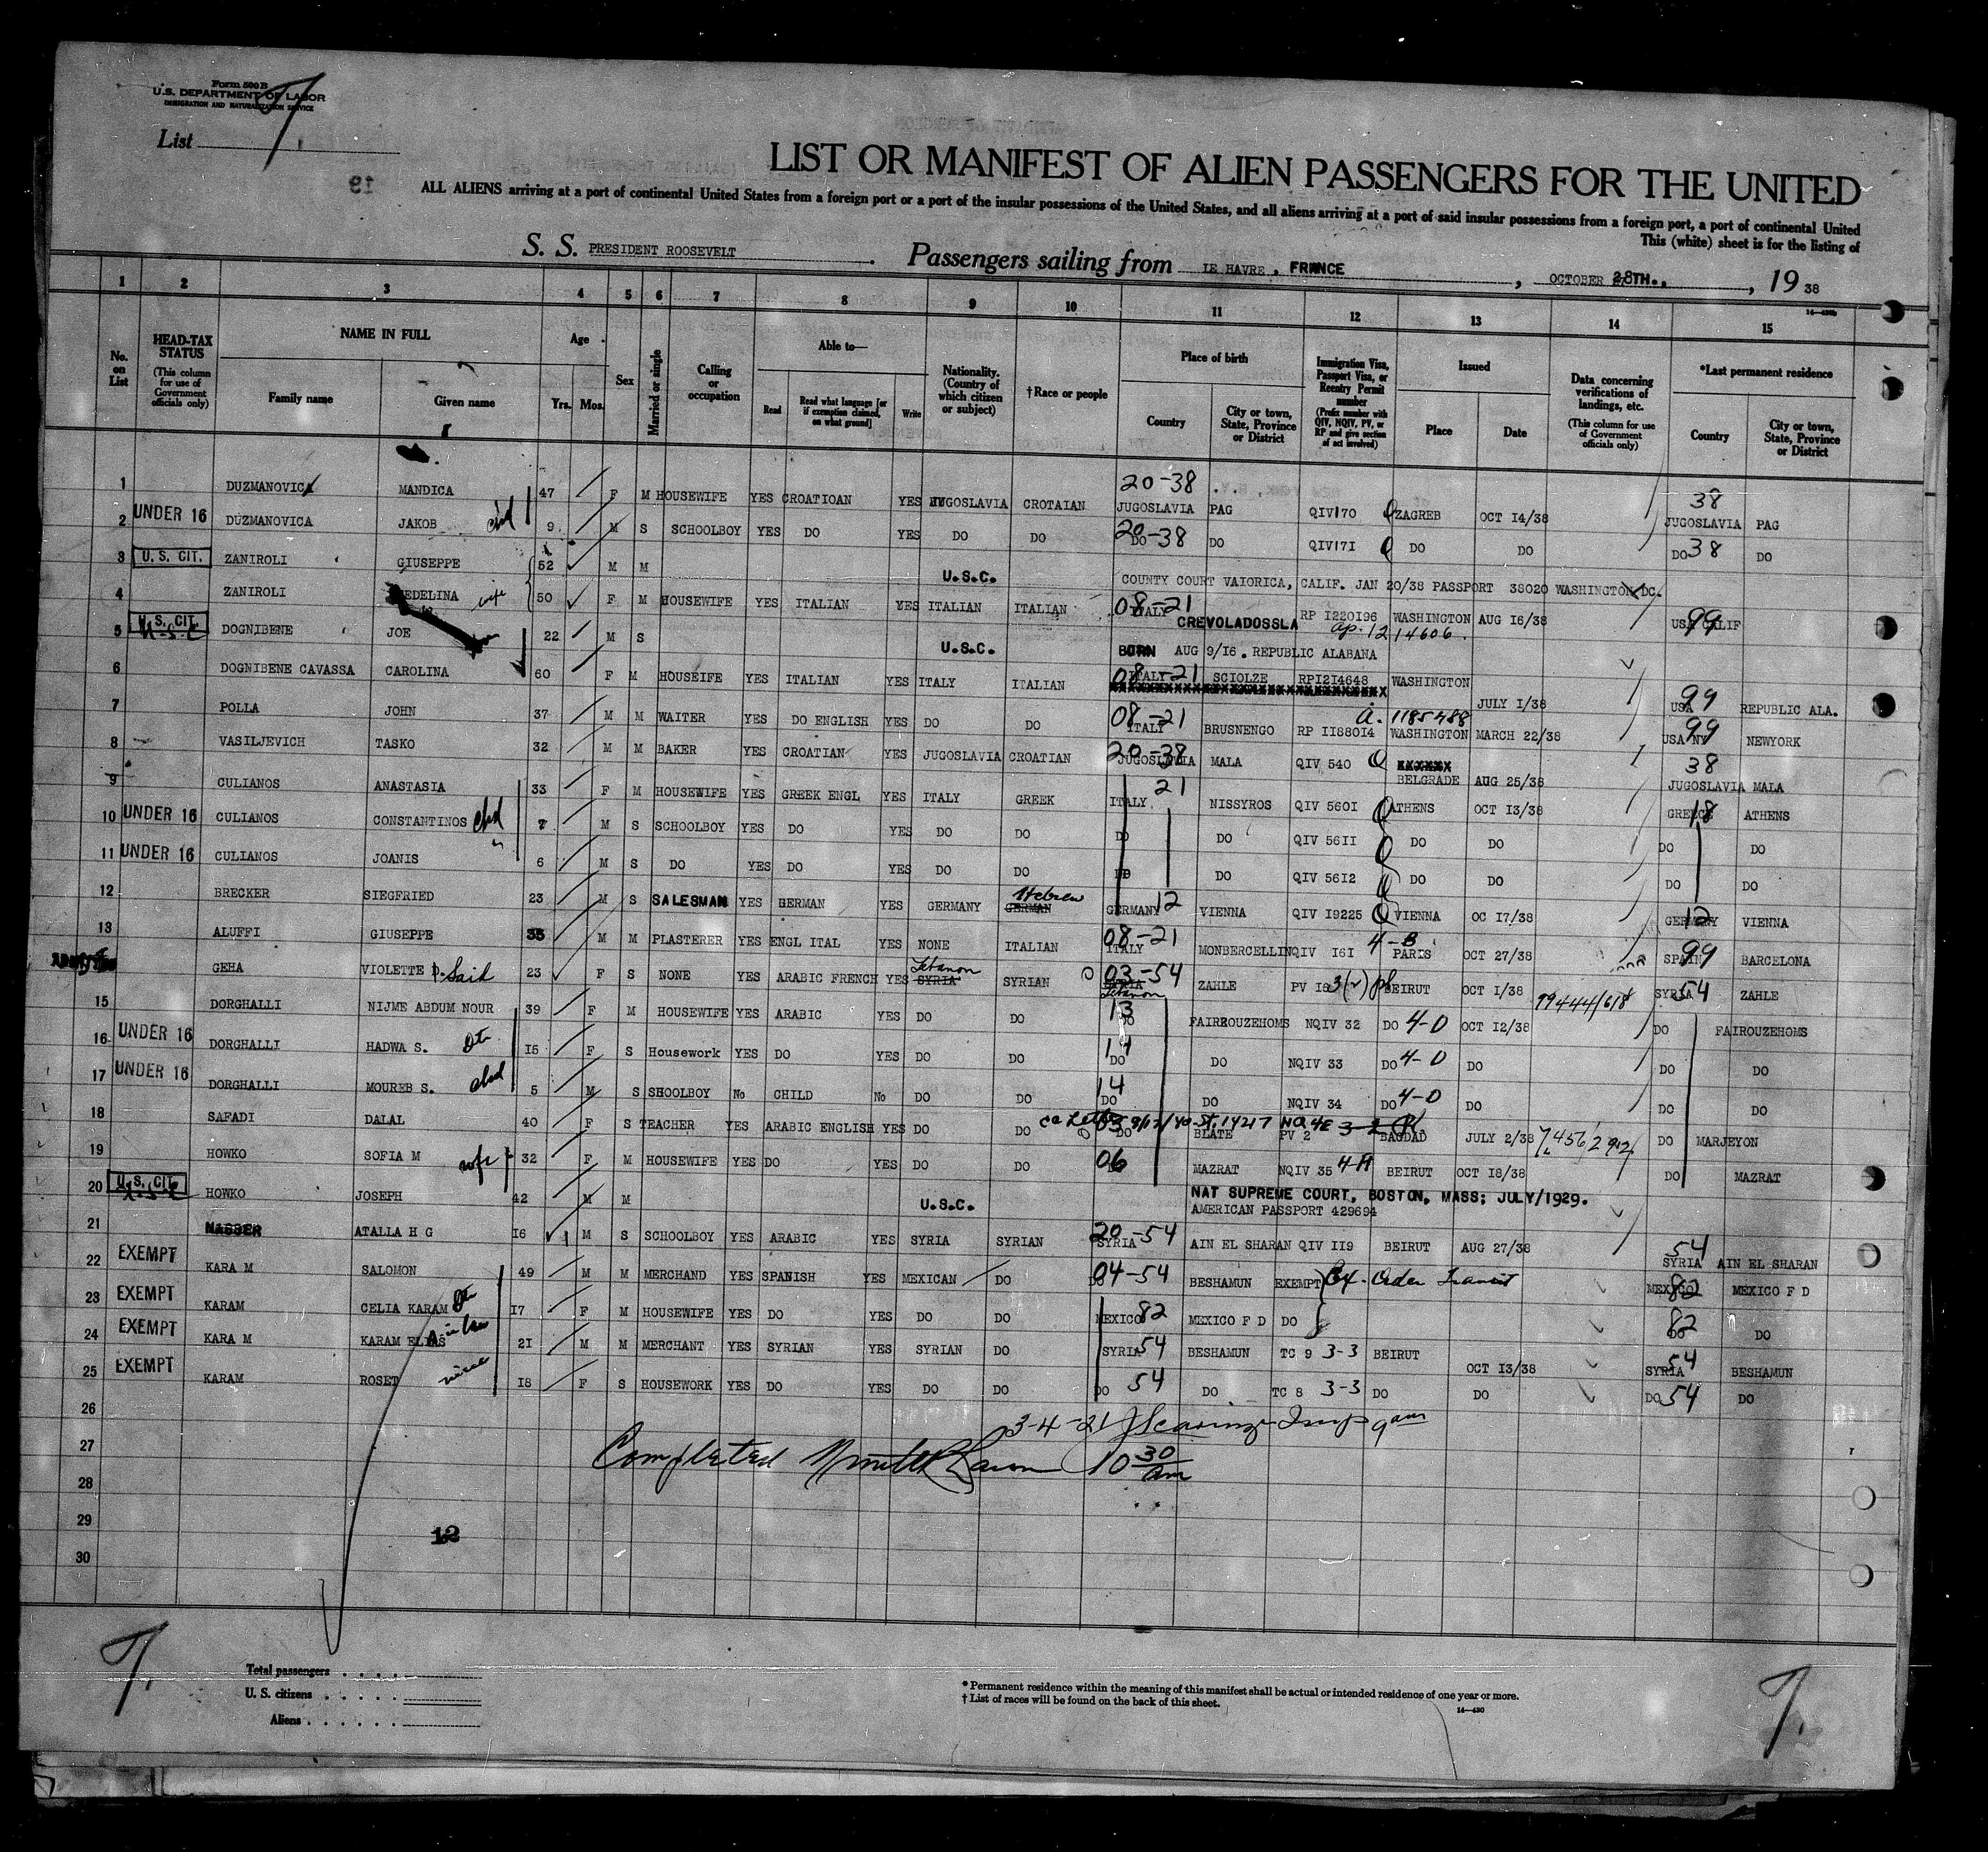 Form 500 B
U.S. DEPARTMENT OF LABOR
IMMIGRATION AND NATURALIZATION SERVICE
List 7.
LIST OR MANIFEST OF ALIEN PASSENGERS FOR THE UNITED
ALL ALIENS arriving at a port of continental United States from a foreign port or a port of the insular possessions of the United States, and all aliens arriving at a port of said insular possessions from a foreign port, a port of continental United
This (white) sheet is for the listing of
S. S. PRESIDENT ROOSEVELT. Passengers sailing from LE HAVRE, FRANCE, OCTOBER 28TH., 19 38
1 2 3 4 5 6 7 8 9 10 11 12 13 14 15
No. on List
HEAD-TAX STATUS (This column for use of Government officials only)
NAME IN FULL Family name Given name
Age Yrs. Mos.
Sex
Married or single
Calling or occupation
Able to— Read Read what language [or if exemption claimed, on what ground] Write
Nationality. (Country of which citizen or subject)
†Race or people
Place of birth Country City or town, State, Province or District
Immigration Visa, Passport Visa, or Reentry Permit number (Prefix number with QIV, NQIV, PV, or RP and give section of act involved)
Issued Place Date
Data concerning verifications of landings, etc. (This column for use of Government officials only)
*Last permanent residence Country City or town, State, Province or District
1 DUZMANOVICA MANDICA 47 F M HOUSEWIFE YES CROATIOAN YES JUGOSLAVIA CROTAIAN 20-38 JUGOSLAVIA PAG QIV170 ZAGREB OCT 14/38 38 JUGOSLAVIA PAG
2 UNDER 16 DUZMANOVICA JAKOB chd 9 M S SCHOOLBOY YES DO YES DO DO 20-38 DO DO QIV171 DO DO 38 DO DO
3 U. S. CIT. ZANIROLI GIUSEPPE 52 M M U.S.C. COUNTY COURT VAIORICA, CALIF. JAN 20/38 PASSPORT 38020 WASHINGTON DC.
4 ZANIROLI EDELINA wife 50 F M HOUSEWIFE YES ITALIAN YES ITALIAN ITALIAN 08-21 ITALY CREVOLADOSSLA RP 1220196 ap. 1214606. WASHINGTON AUG 16/38 99 USA CALIF
5 U. S. CIT. DOGNIBENE JOE 22 M S U.S.C. BORN AUG 9/16. REPUBLIC ALABANA
6 DOGNIBENE CAVASSA CAROLINA 60 F M HOUSEIFE YES ITALIAN YES ITALY ITALIAN 08-21 ITALY SCIOLZE RP1214648 WASHINGTON JULY 1/38 99 USA REPUBLIC ALA.
7 POLLA JOHN 37 M M WAITER YES DO ENGLISH YES DO DO 08-21 ITALY BRUSNENGO RP 1188014 a. 1185488 WASHINGTON MARCH 22/38 99 USA NY NEWYORK
8 VASILJEVICH TASKO 32 M M BAKER YES CROATIAN YES JUGOSLAVIA CROATIAN 20-38 JUGOSLAVIA MALA QIV 540 BELGRADE AUG 25/38 38 JUGOSLAVIA MALA
9 CULIANOS ANASTASIA 33 F M HOUSEWIFE YES GREEK ENGL YES ITALY GREEK ITALY 21 NISSYROS QIV 5601 ATHENS OCT 13/38 GREECE 18 ATHENS
10 UNDER 16 CULIANOS CONSTANTINOS chd 7 M S SCHOOLBOY YES DO YES DO DO DO DO QIV 5611 DO DO DO DO
11 UNDER 16 CULIANOS JOANIS " 6 M S DO YES DO YES DO DO DO DO QIV 5612 DO DO DO DO
12 BRECKER SIEGFRIED 23 M S SALESMAN YES GERMAN YES GERMANY Hebrew GERMAN GERMANY 12 VIENNA QIV 19225 VIENNA OC 17/38 GERMANY 12 VIENNA
13 ALUFFI GIUSEPPE 35 M M PLASTERER YES ENGL ITAL YES NONE ITALIAN 08-21 ITALY MONBERCELLI NQIV 161 4-B PARIS OCT 27/38 SPAIN 99 BARCELONA
GEHA VIOLETTE D. Said 23 F S NONE YES ARABIC FRENCH YES Lebanon SYRIA SYRIAN 03-54 SYRIA Lebanon ZAHLE PV 18 3(2) BEIRUT OCT 1/38 99444/618 SYRIA 54 ZAHLE
15 DORGHALLI NIJME ABDUM NOUR 39 F M HOUSEWIFE YES ARABIC YES DO DO 13 DO FAIREOUZEHOMS NQIV 32 DO 4-D OCT 12/38 DO FAIROUZEHOMS
16 UNDER 16 DORGHALLI HADWA S. Dtr 15 F S Housework YES DO YES DO DO 14 DO DO NQIV 33 DO 4-D DO DO DO
17 UNDER 16 DORGHALLI MOUREB S. chd 5 M S SHOOLBOY No CHILD No DO DO 14 DO DO NQIV 34 DO 4-D DO DO DO
18 SAFADI DALAL 40 F S TEACHER YES ARABIC ENGLISH YES DO DO 03 DO BLATE PV 2 3-2 BAGDAD JULY 2/38 DO MARJEYON
19 HOWKO SOFIA M wife 32 F M HOUSEWIFE YES DO YES DO DO 06 MAZRAT NQIV 35 4-A BEIRUT OCT 18/38 DO MAZRAT
20 U. S. CIT. HOWKO JOSEPH 42 M M U.S.C. NAT SUPREME COURT, BOSTON, MASS; JULY/1929. AMERICAN PASSPORT 429694
21 NASSER ATALLA H G 16 M S SCHOOLBOY YES ARABIC YES SYRIA SYRIAN 20-54 SYRIA AIN EL SHARAN QIV 119 BEIRUT AUG 27/38 54 SYRIA AIN EL SHARAN
22 EXEMPT KARA M SALOMON 49 M M MERCHAND YES SPANISH YES MEXICAN DO 04-54 DO BESHAMUN EXEMPT Order Transit MEXICO 82 MEXICO F D
23 EXEMPT KARAM CELIA KARAM Dtr 17 F M HOUSEWIFE YES DO YES DO DO MEXICO 82 MEXICO F D DO 82 DO DO
24 EXEMPT KARA M KARAM ELIAS 21 M M MERCHANT YES SYRIAN YES SYRIAN DO SYRIA 54 BESHAMUN TC 9 3-3 BEIRUT OCT 13/38 SYRIA 54 BESHAMUN
25 EXEMPT KARAM ROSET niece 18 F S HOUSEWORK YES DO YES DO DO DO 54 DO TC 8 3-3 DO DO DO 54 DO
26 3-4-21 Hearing 9 am
27 Completed 10 30 am
28
29
30
12
7.
Total passengers
U. S. citizens
Aliens
* Permanent residence within the meaning of this manifest shall be actual or intended residence of one year or more.
† List of races will be found on the back of this sheet.
14—430
7.